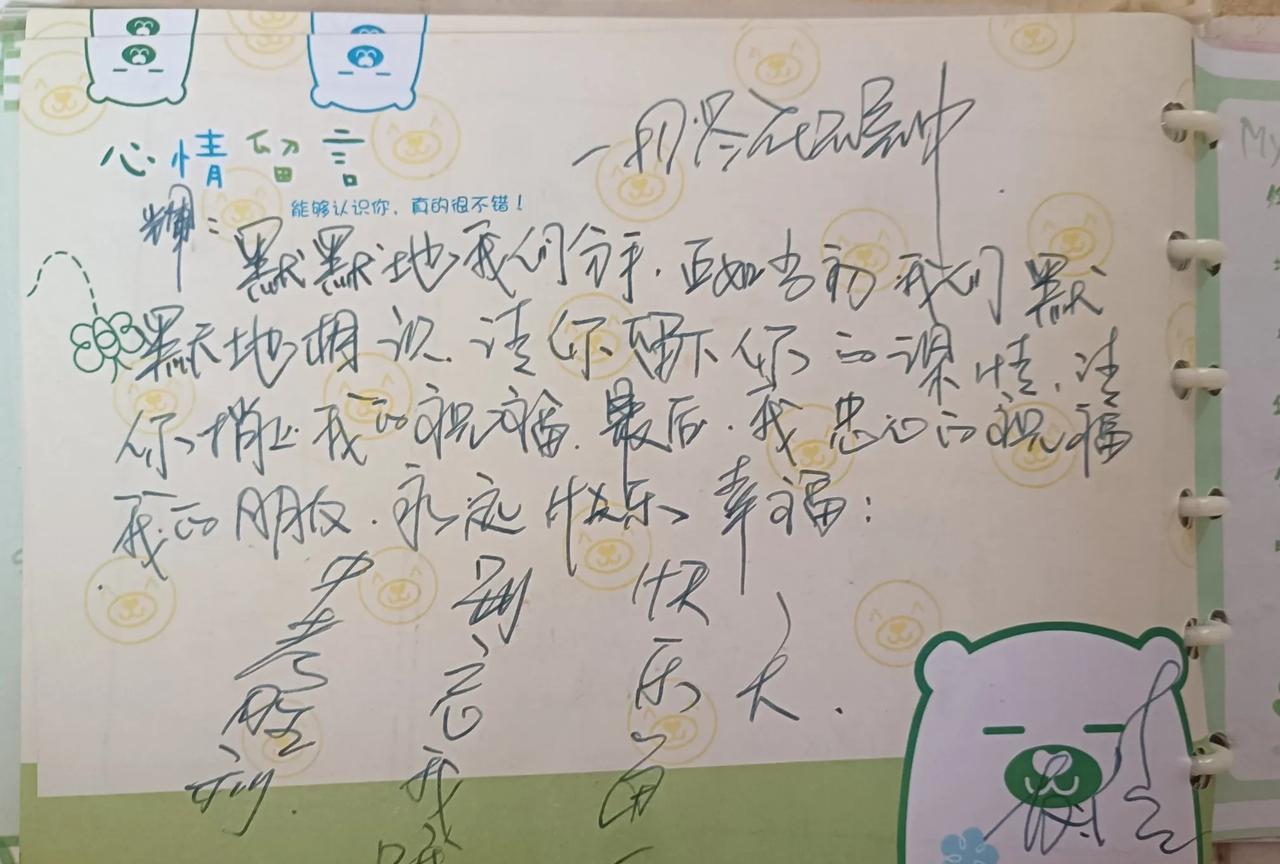 一切尽在不言中
心情留言
能够认识你，真的很不错！
辉：
默默地我们分手.正如当初我们默
默地相识.请你留下你的深情.请
你捎上我的祝福.最后.我忠心的祝福
我的朋友.永远快乐幸福：
中考胜利.
别忘我
快乐
天天.
My